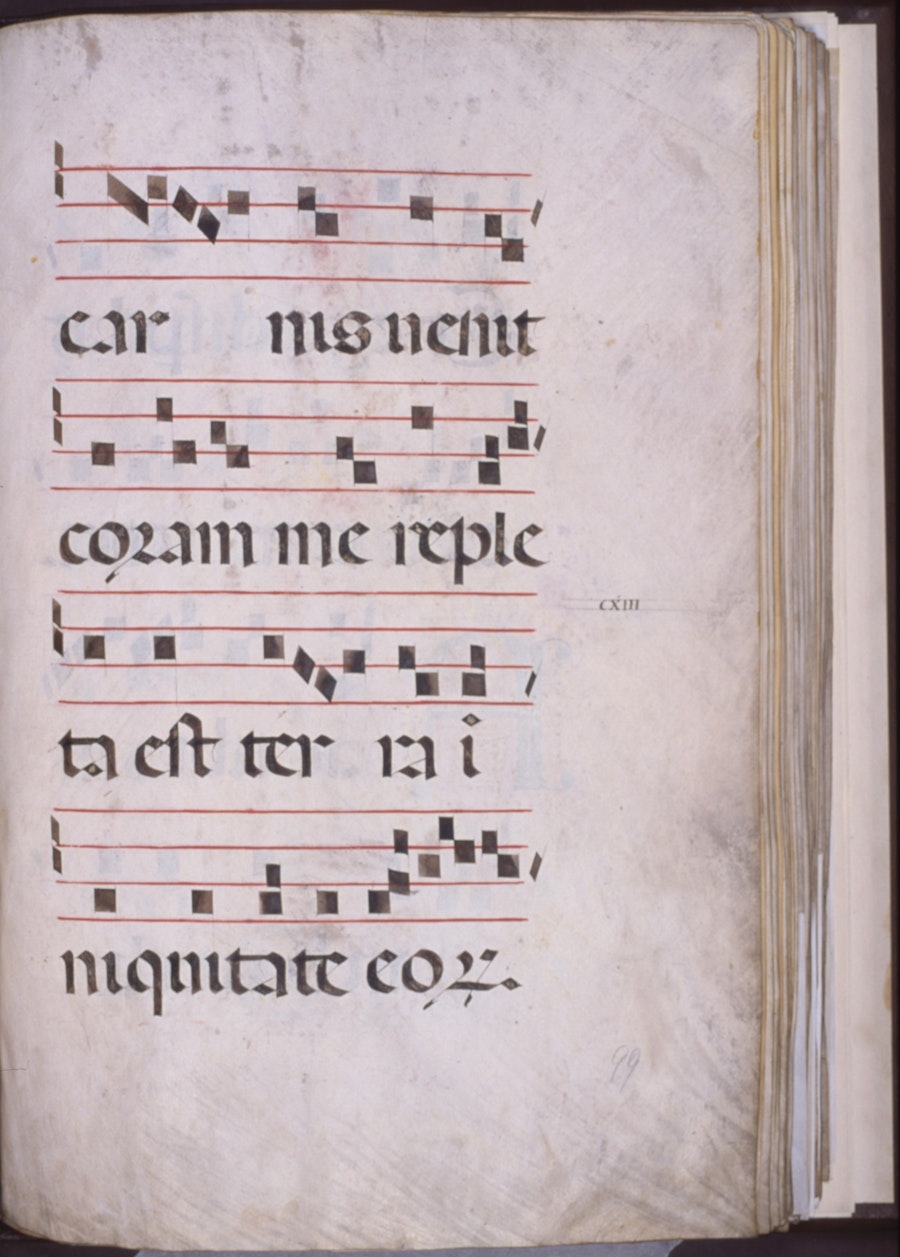 car nis uenit
coram me reple
cxiii
ta est ter ra i
niquitate eoꝝ.
99